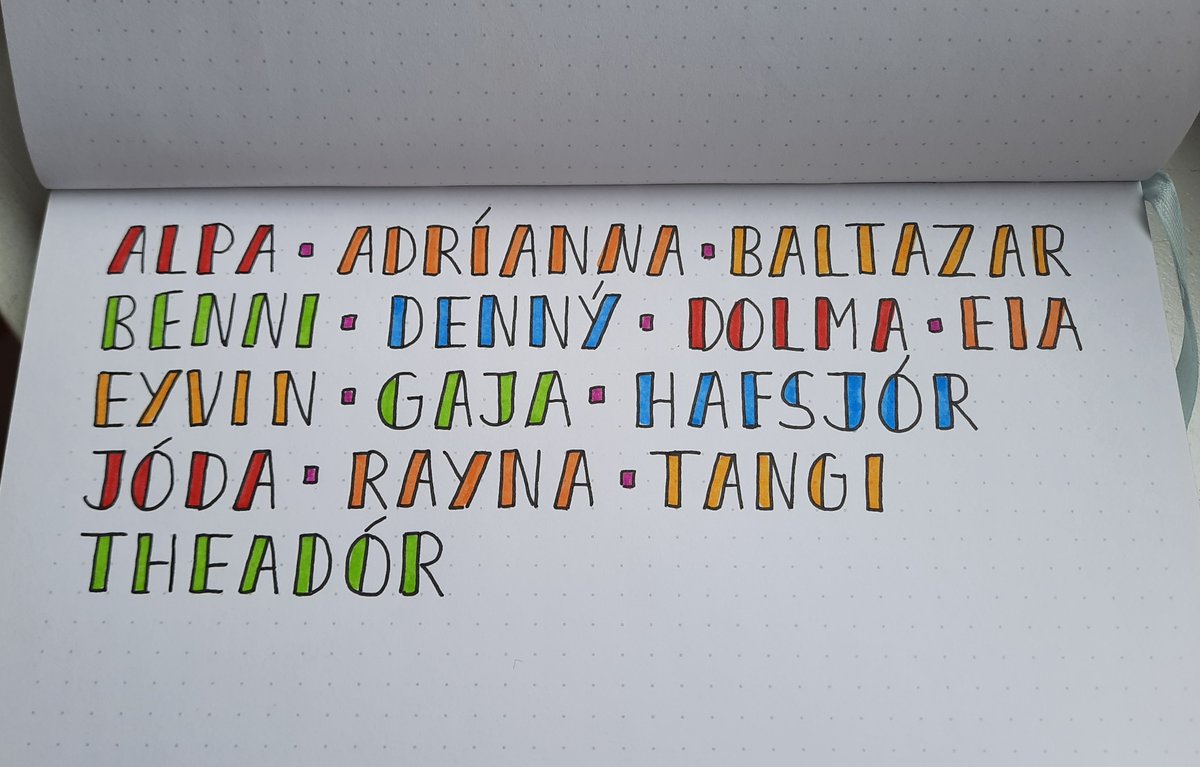 ALPA ▪ ADRÍANNA ▪ BALTAZAR
BENNI ▪ DENNÝ ▪ DOLMA ▪ EIA
EYVIN ▪ GAJA ▪ HAFSJÓR
JÓDA ▪ RAYNA ▪ TANGI
THEADÓR